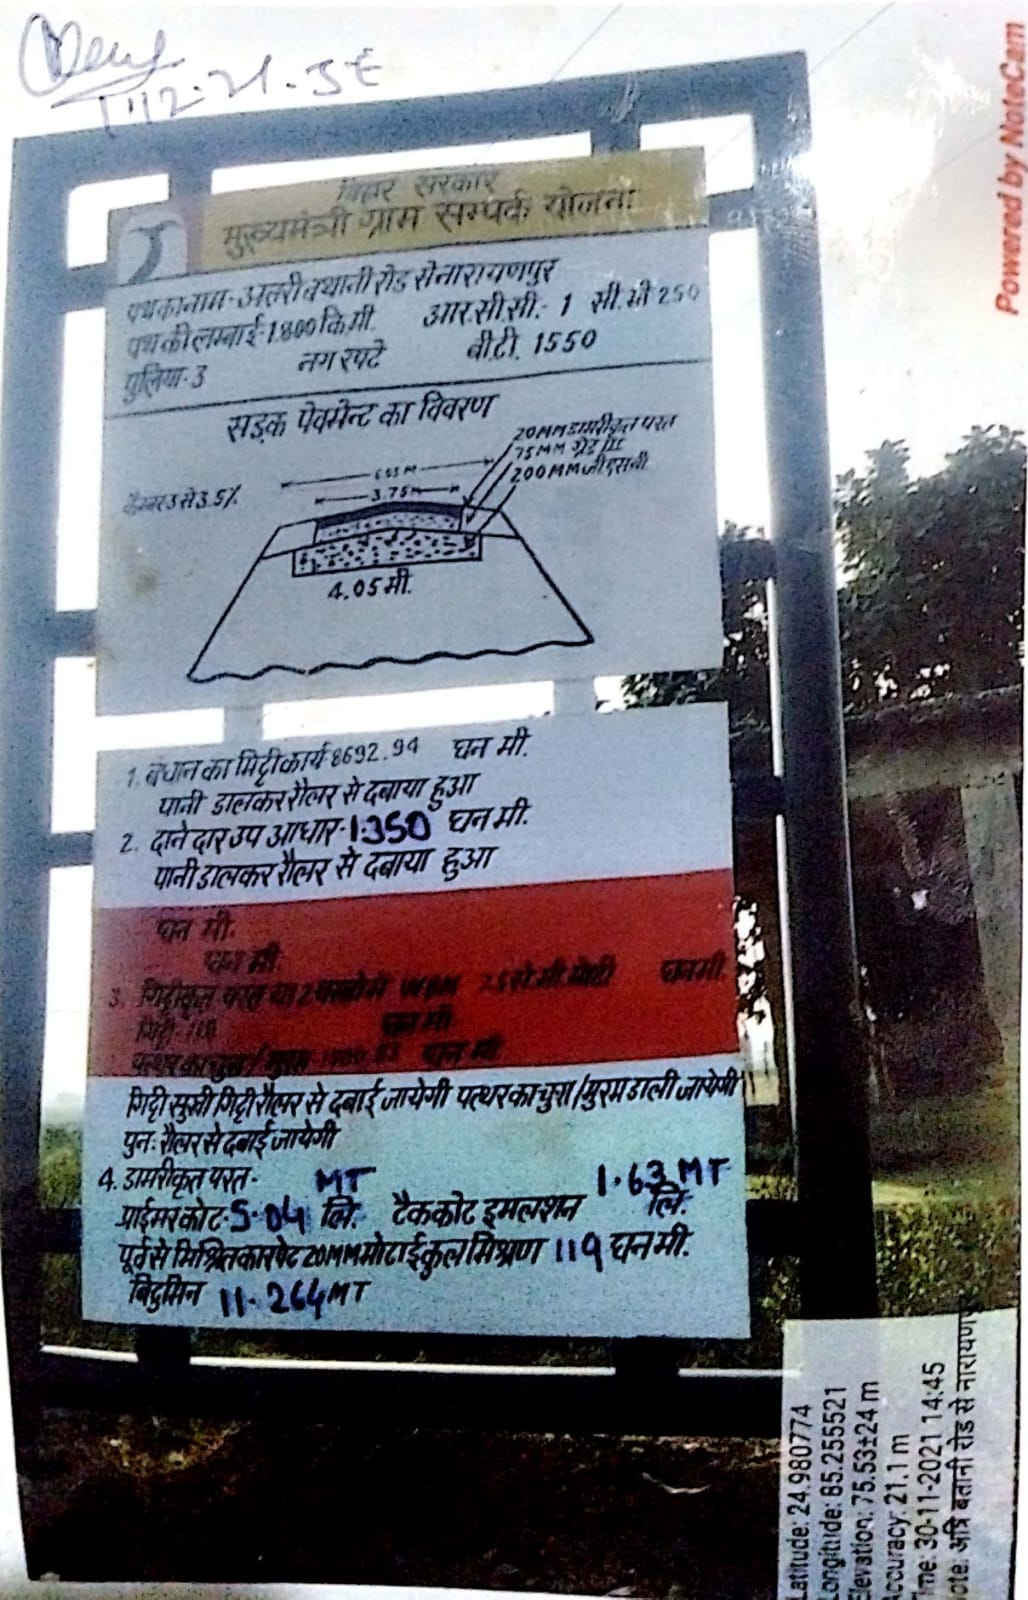 1.12.21. JE
बिहार सरकार
मुख्यमंत्री ग्राम सम्पर्क योजना
पथ का नाम- अतरी बथानी रोड से नारायणपुर
पथ की लम्बाई- 1.800 कि.मी. आर.सी.सी.- 1 सी.सी 250
पुलिया- 3 नग रपटे बी.टी. 1550
सड़क पेवमेन्ट का विवरण
20MM डामरीकृत परत
75MM ग्रेड III
200MM जीएसबी
3.75M
कैम्बर 3 से 3.5%
4.05 मी.
1. बंधान का मिट्टी कार्य 8692.94 घन मी.
पानी डालकर रौलर से दबाया हुआ
2. दानेदार उप आधार- 1350 घन मी.
पानी डालकर रौलर से दबाया हुआ
घन मी.
घन मी.
3. गिट्टीकृत परत या 2 परतो में WBM 7.5 से.मी. मोटी घन मी.
गिट्टी घन मी.
पत्थर का चुरा/मुरम घन मी.
गिट्टी सुखी गिट्टी रौलर से दबाई जायेगी पत्थर का चुरा/मुरम डाली जायेगी
पुनः रौलर से दबाई जायेगी
4. डामरीकृत परत-
प्राईमर कोट- 5.04 MT लि. टैक कोट इमलशन 1.63 MT लि.
पूर्व से मिश्रित कारपेट 20MM मोटाई कुल मिश्रण 119 घन मी.
बिटुमिन 11.264 MT
Powered by NoteCam
Latitude: 24.980774
Longitude: 85.255521
Elevation: 75.53±24 m
Accuracy: 21.1 m
Time: 30-11-2021 14:45
Note: अत्रि बतानी रोड से नारायणपुर